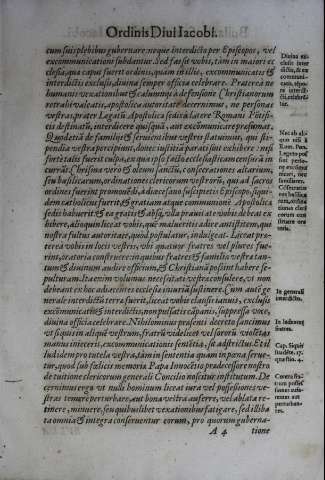 Ordinis Diui Iacobi.
cum suis plebibus gubernare: neque interdicto per Episcopos, vel
excommunicationi subdantur. Sed fas sit vobis, tàm in maiori ec
clesia, quæ caput fuerit ordinis, quam in aliis, excommunicatis &
interdictis exclusis, diuina semper officia celebrare. Præterea ne ab
humanis vexationibus & calumniis à defensione Christianorum
retrahi valeatis, apostolica autoritate decernimus, ne personas
vestras, præter Legatū Apostolicæ sedis à latere Romani Pōtifi-
cis destinatū, interdicere quisquā, aut excommunicare præsumat.
Quod etiā de familiis & seruientibus vestris statuimus, qui sti-
pendia vestra percipiunt, donec iustitia parati sunt exhibere: nisi
forte talis fuerit culpa, ex qua ipso facto ecclesiasticam censurā in
currāt. Chrisma vero & oleum sanctū, consecrationes altarium,
seu basilicarum, ordinationes clericorum vestrorum, qui ad sacros
ordines fuerint promouēdi, à diœcesano suscipietis Episcopo, siqui-
dem catholicus fuerit, & gratiam atque communionē Apostolicæ
sedis habuerit & ea gratis & absq́; vlla prauitate vobis debeat ex
hibere, alioquin liceat vobis, quē malueritis adire antistitem, qui
nostra fultus autoritate, quod postulatur, indulgeat. Liceat præ-
terea vobis in locis vestris, vbi quatuor fratres vel plures fue-
rint, oratoria construere: in quibus fratres & familia vestra tan-
tum & diuinum audire officium, & Christianā possint habere se-
pulturam. Ita enim volumus necessitati vestræ consulere, vt non
debeant ex hoc adiacentes ecclesiæ iniuriā sustinere. Cum autē ge
nerale interdictū terræ fuerit, liceat vobis clausis ianuis, exclusis
excōmunicatis & interdictis, non pulsatis cāpanis, suppressa voce,
diuina officia celebrare. Nihilominus præsenti decreto sancimus
vt si quis in aliquē vestrum, fratrū videlicet vel sororū violētas
manus iniecerit, excommunicationis sentētia, sit adstrictus. Et il
lud idem pro tutela vestra, tàm in sententia quàm in pœna serue-
tur, quod sub fœlicis memoriæ Papa Innocētio prædecessore nostro
de tuitione clericorum generali Concilio noscitur institutum. De
cernimus ergo vt nulli hominum liceat iura vel possessiones ve-
stras temerè perturbare, aut bona vestra auferre, vel ablata re-
tinere, minuere, seu quibuslibet vexationibus fatigare, sed illiba
ta omnia & integra conseruentur eorum, pro quorum guberna-
A 4 tione
In generali
interdicto.